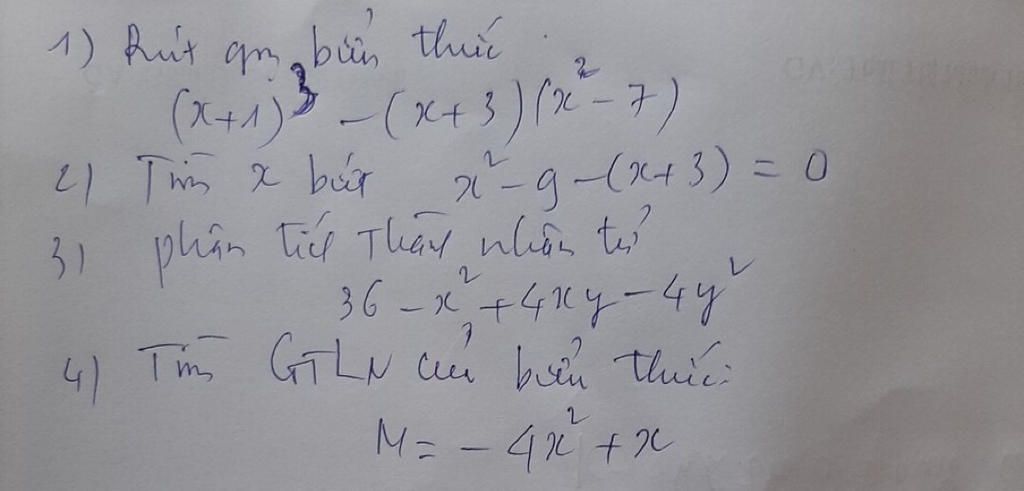 1) Rút gọn biểu thức
(x+1)³ - (x+3)(x² - 7)
2) Tìm x biết x² - 9 - (x+3) = 0
3) phân tích Thành nhân tử
36 - x² + 4xy - 4y²
4) Tìm GTLN của biểu thức:
M = - 4x² + x